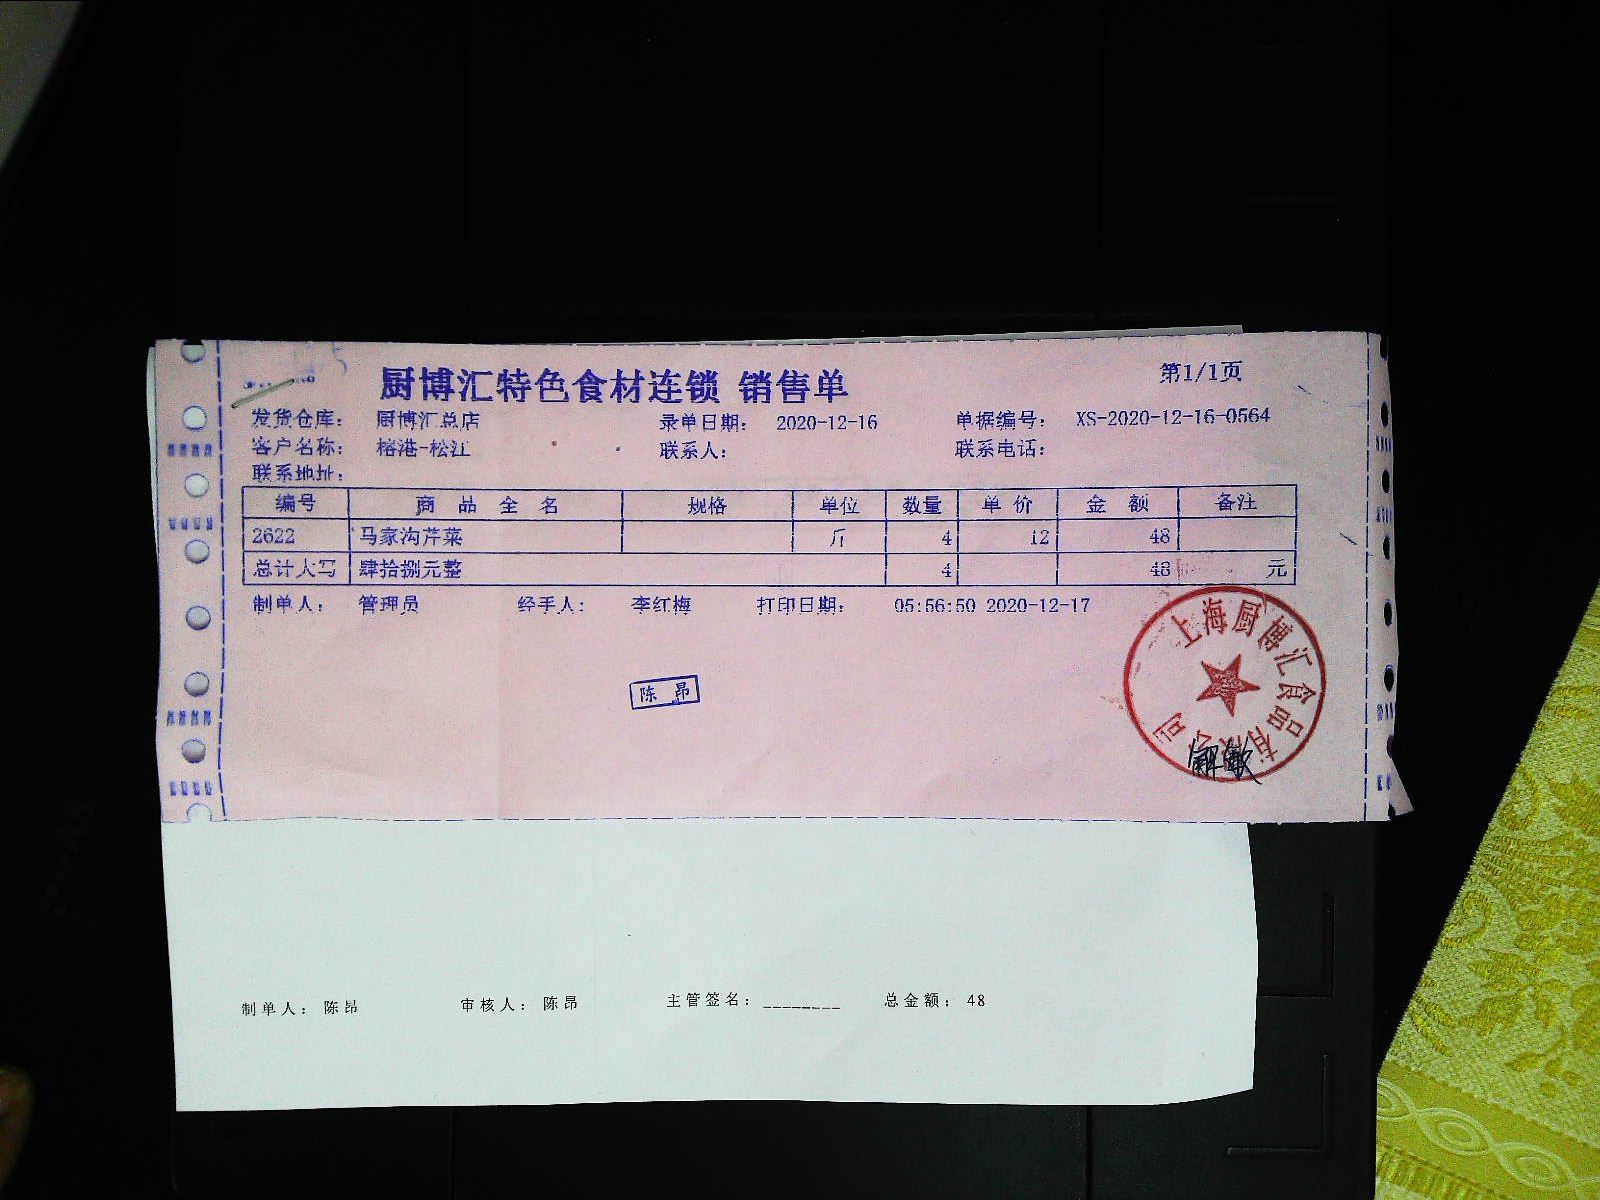 厨博汇特色食材连锁 销售单
第1/1页
发货仓库: 厨博汇总店 录单日期: 2020-12-16 单据编号: XS-2020-12-16-0564
客户名称: 榕港-松江 联系人: 联系电话:
联系地址:
编号 商品全名 规格 单位 数量 单价 金额 备注
2622 马家沟芹菜 斤 4 12 48
总计大写 肆拾捌元整 4 48 元
制单人: 管理员 经手人: 李红梅 打印日期: 05:56:50 2020-12-17
上海厨博汇食品有限公司
陈昂
制单人: 陈昂 审核人: 陈昂 主管签名: ________ 总金额: 48